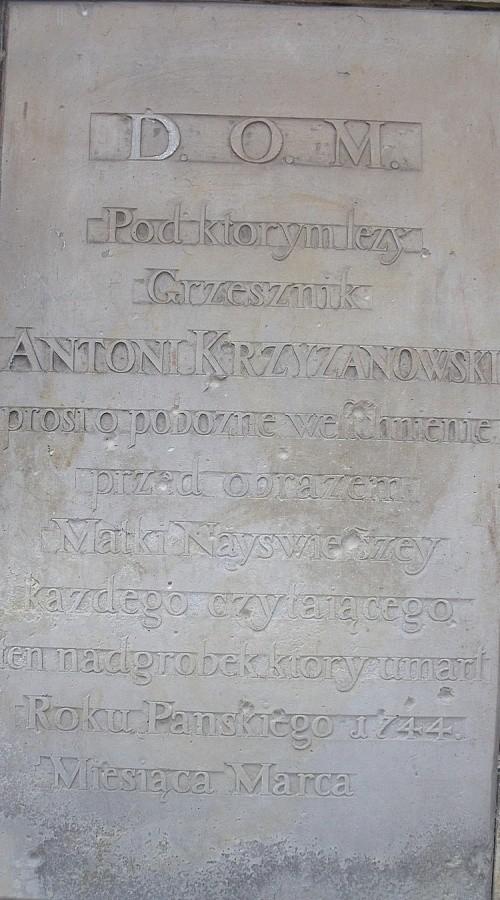 D. O. M.
Pod ktorym lezy
Grzesznik
ANTONI KRZYZANOWSKI
prosi o pobozne westchnienie
przed obrazem
Matki Nayswietszey
kazdego czytaiącego
ten nadgrobek ktory umarł
Roku Panskiego 1744.
Miesiąca Marca